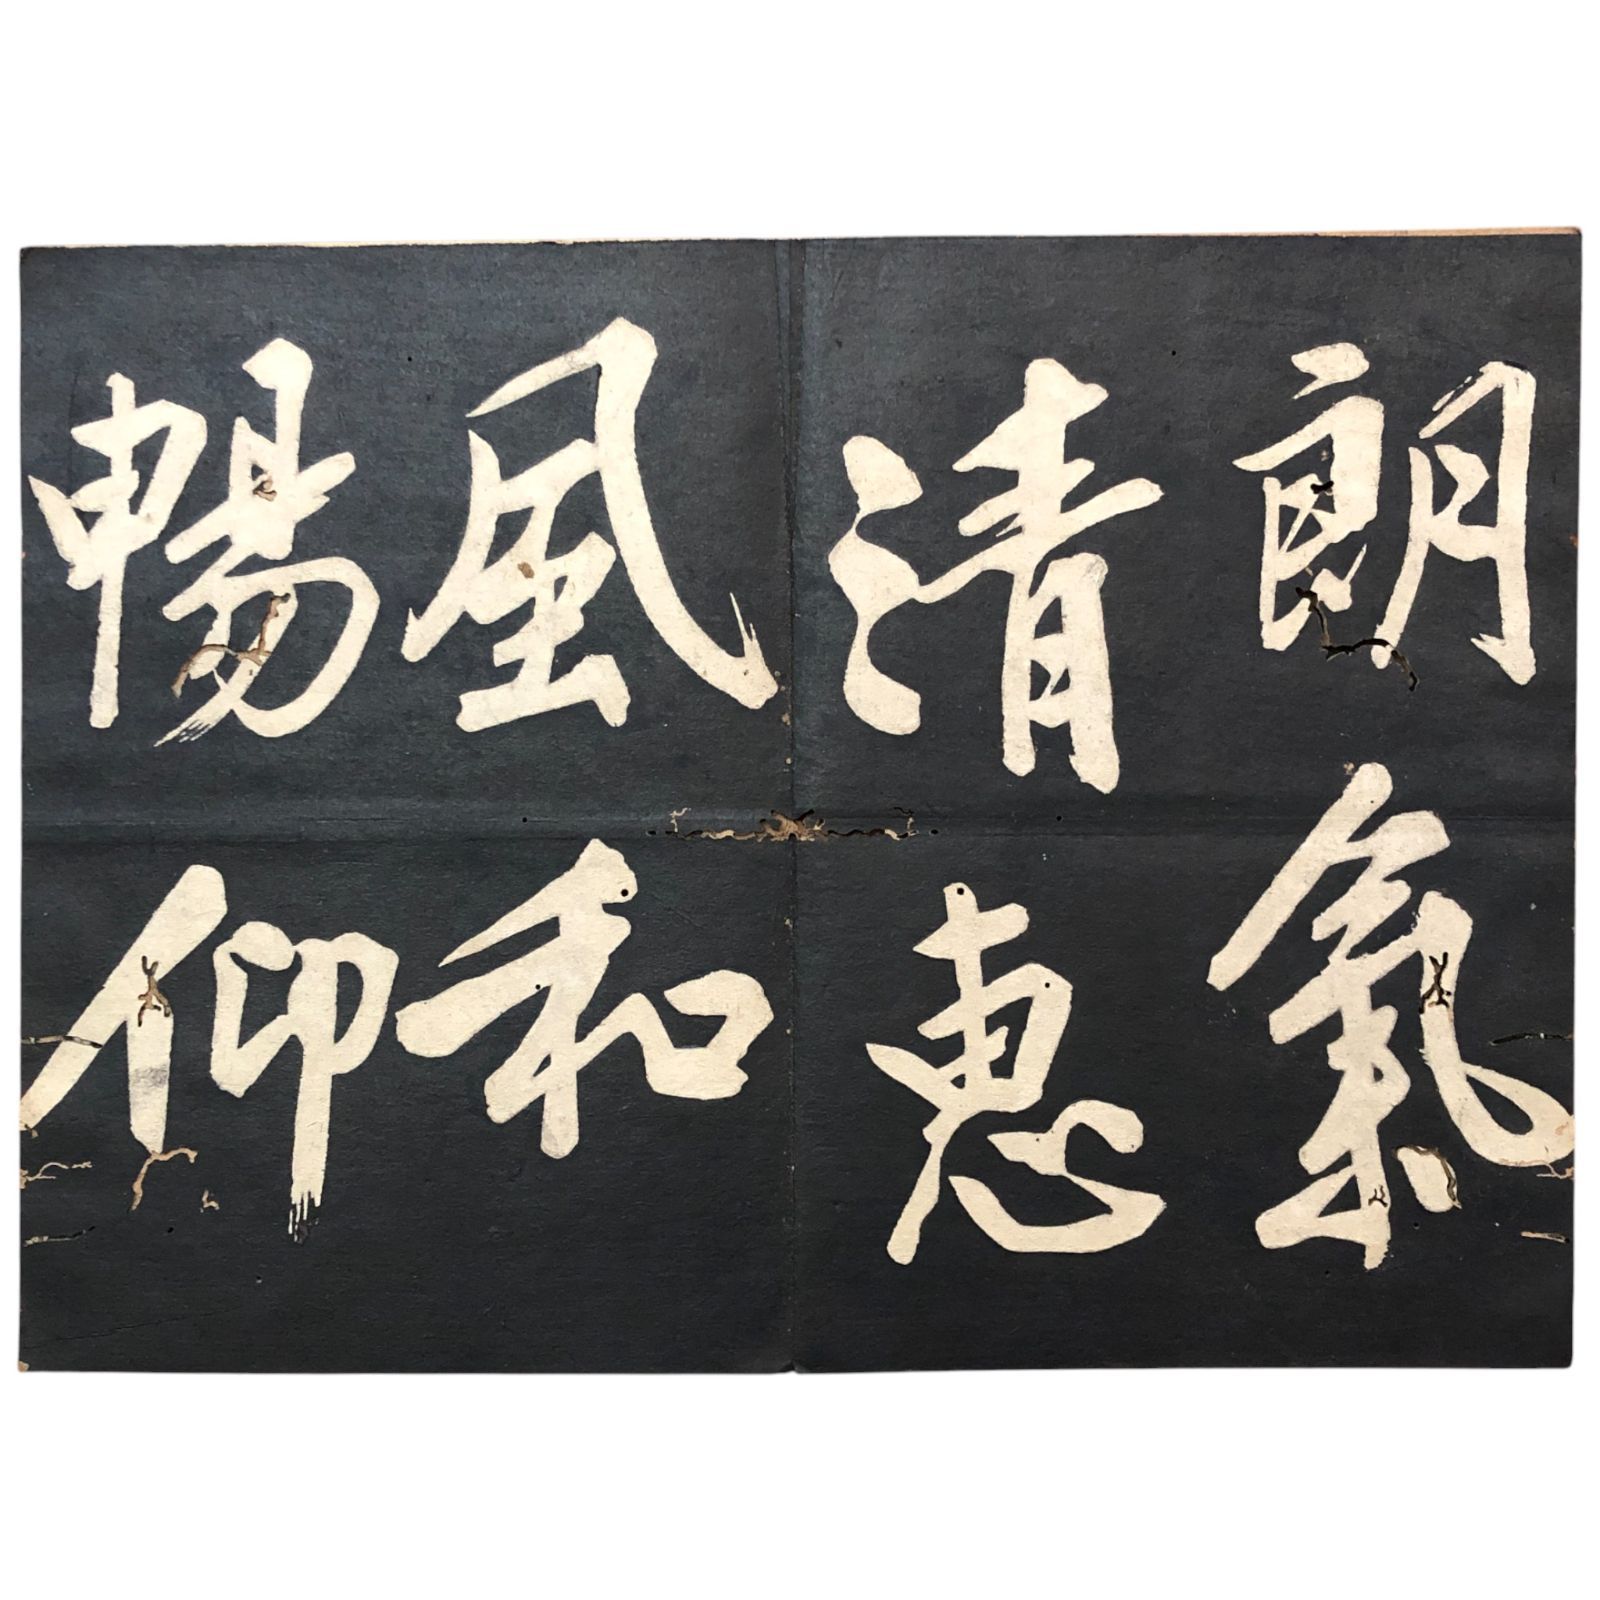 朗氣
清惠
風和
暢仰